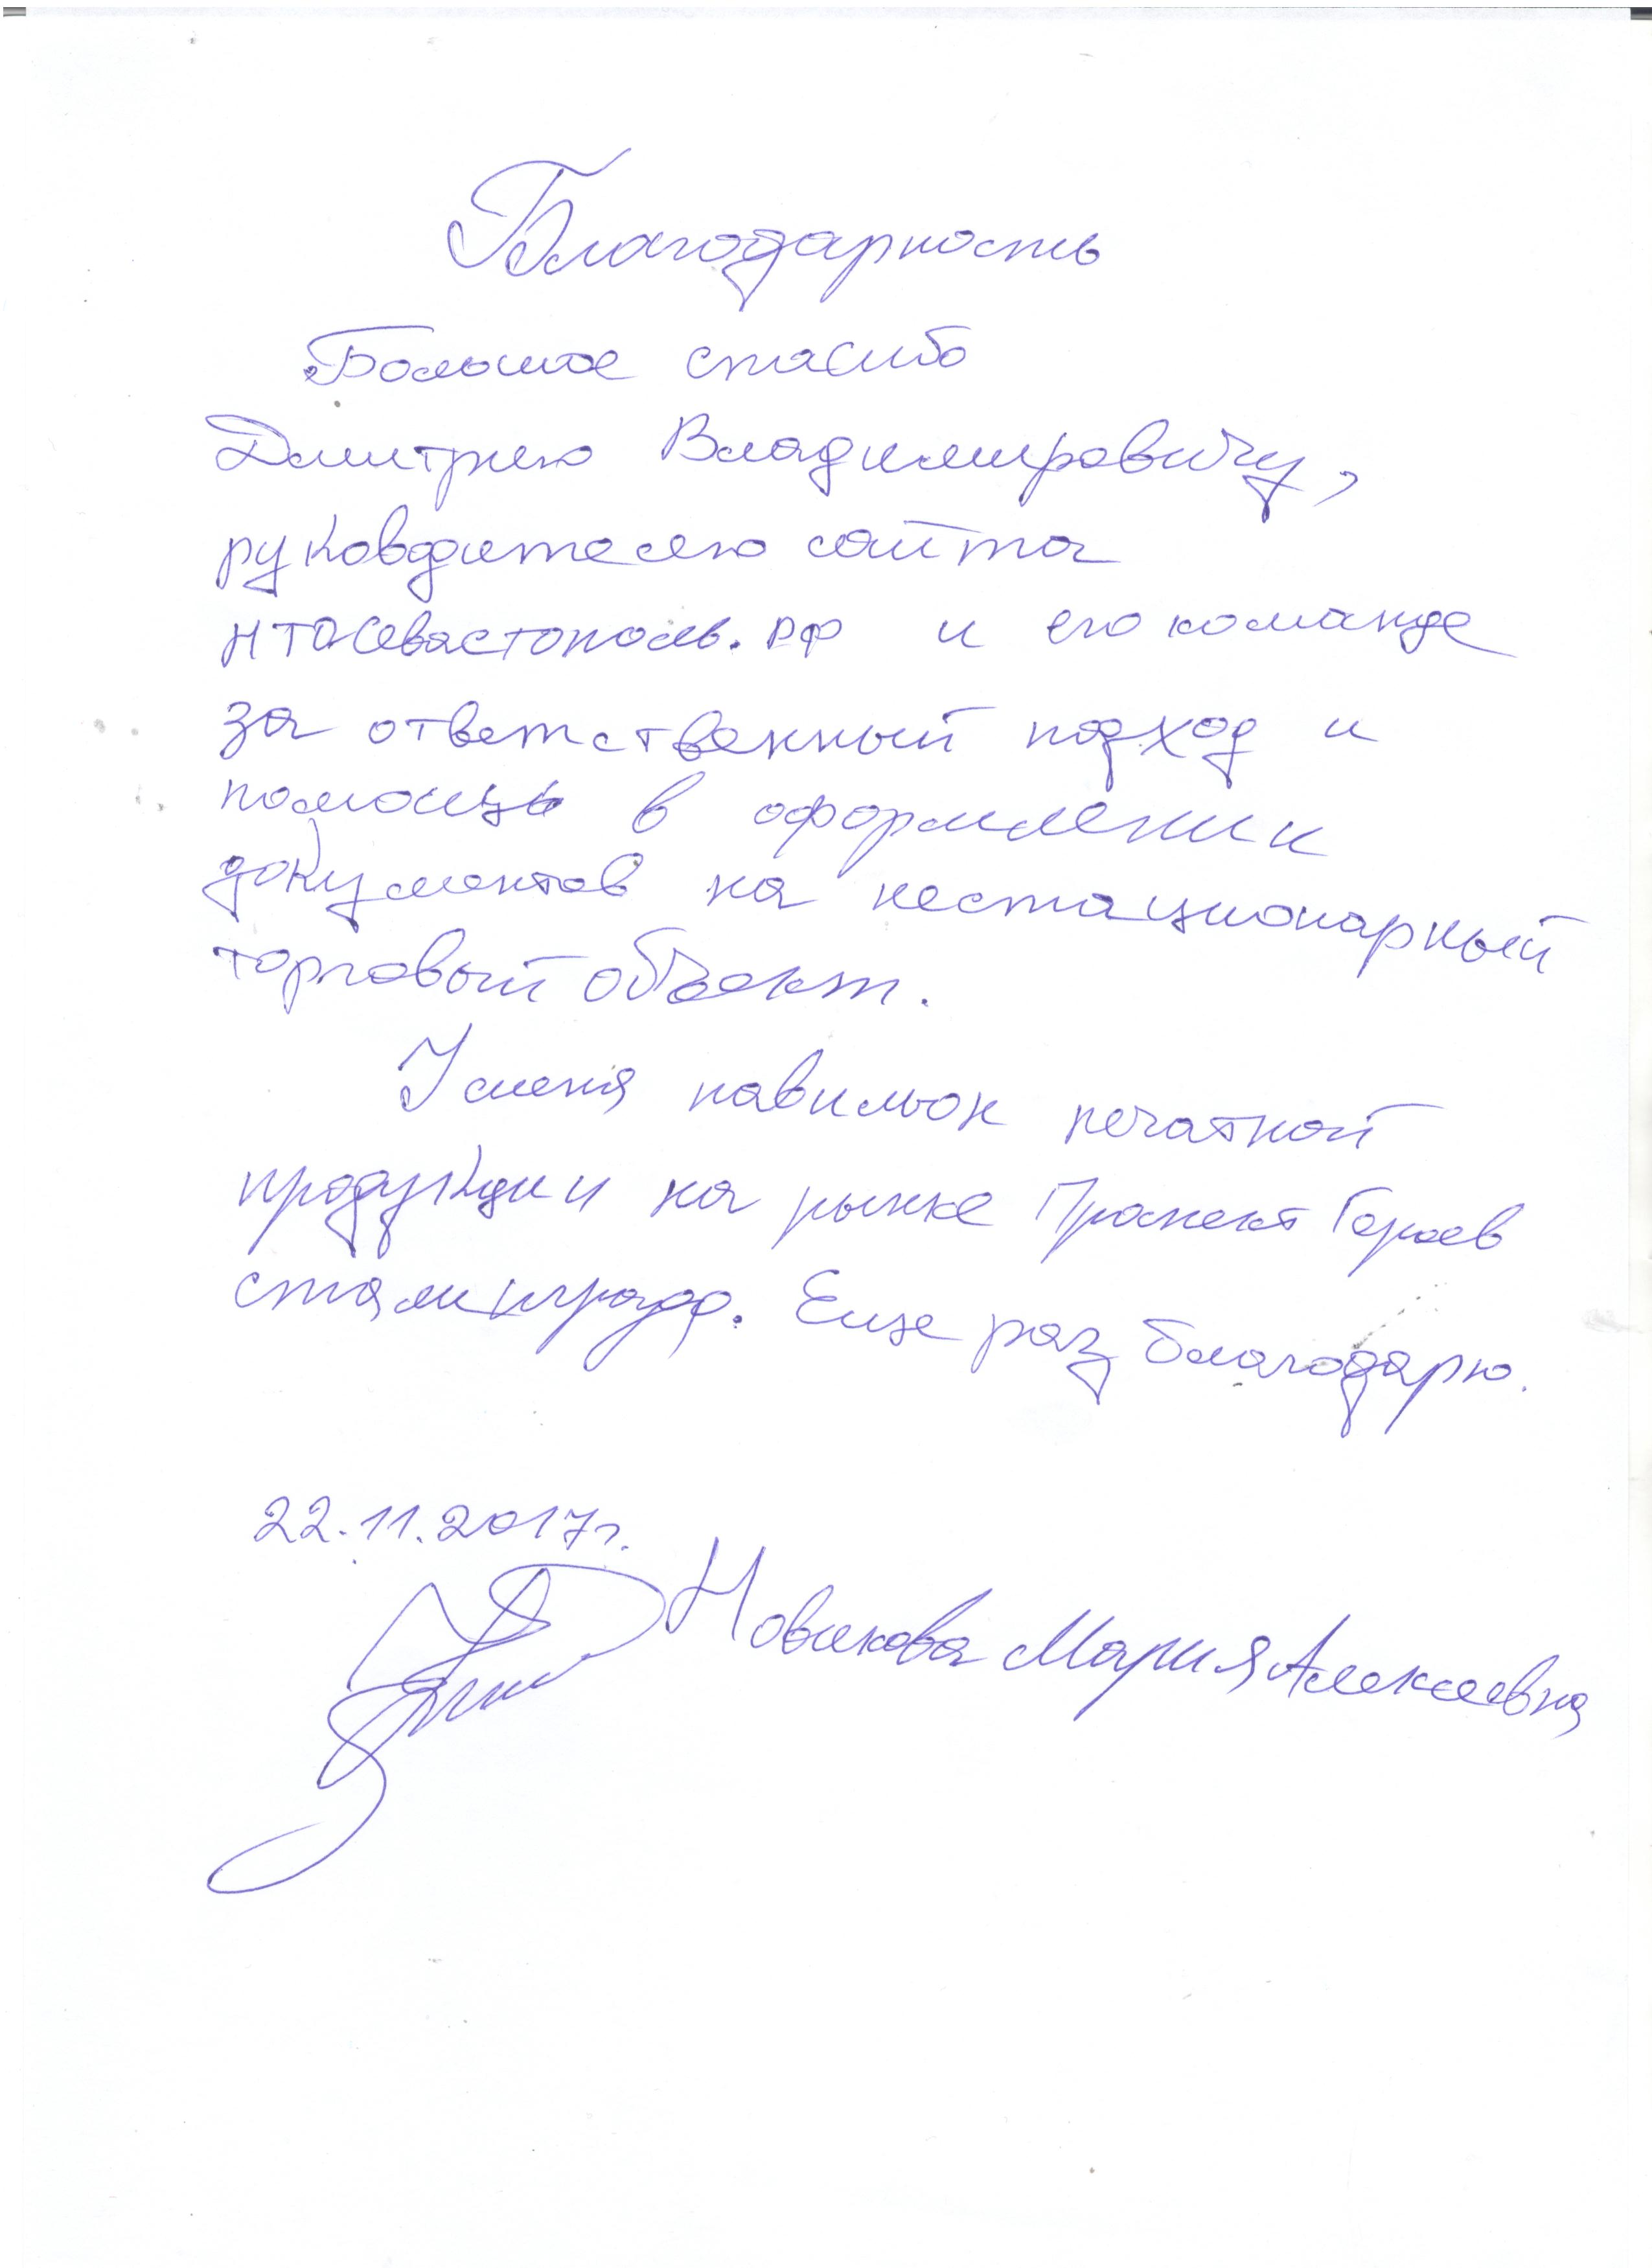 Благодарность
Большое спасибо
Дмитрию Владимировичу,
руководителю сайта
НТОСевастополь.рф и его команде
за ответственный подход и
помощь в оформлении
документов на нестационарный
торговый объект.
У меня павильон печатной
продукции на рынке Проспект Героев
сталинграда. Еще раз благодарю.
22.11.2017г.
Новикова Мария Алексеевна